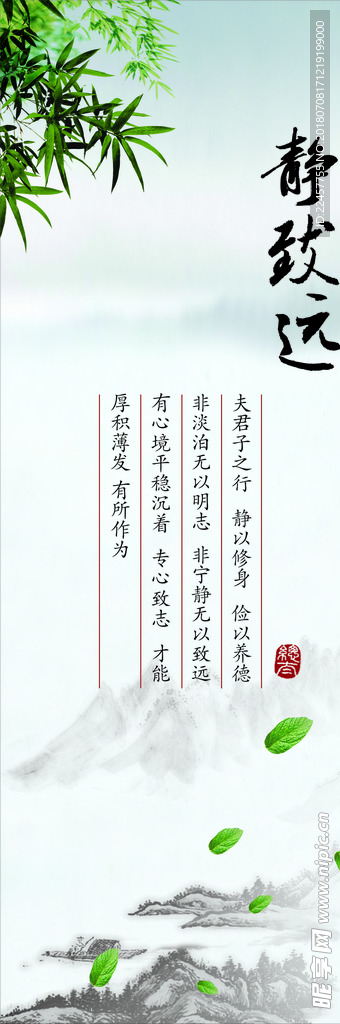 静致远
夫君子之行 静以修身 俭以养德
非淡泊无以明志 非宁静无以致远
有心境平稳沉着 专心致志 才能
厚积薄发 有所作为
昵享网 www.nipic.cn